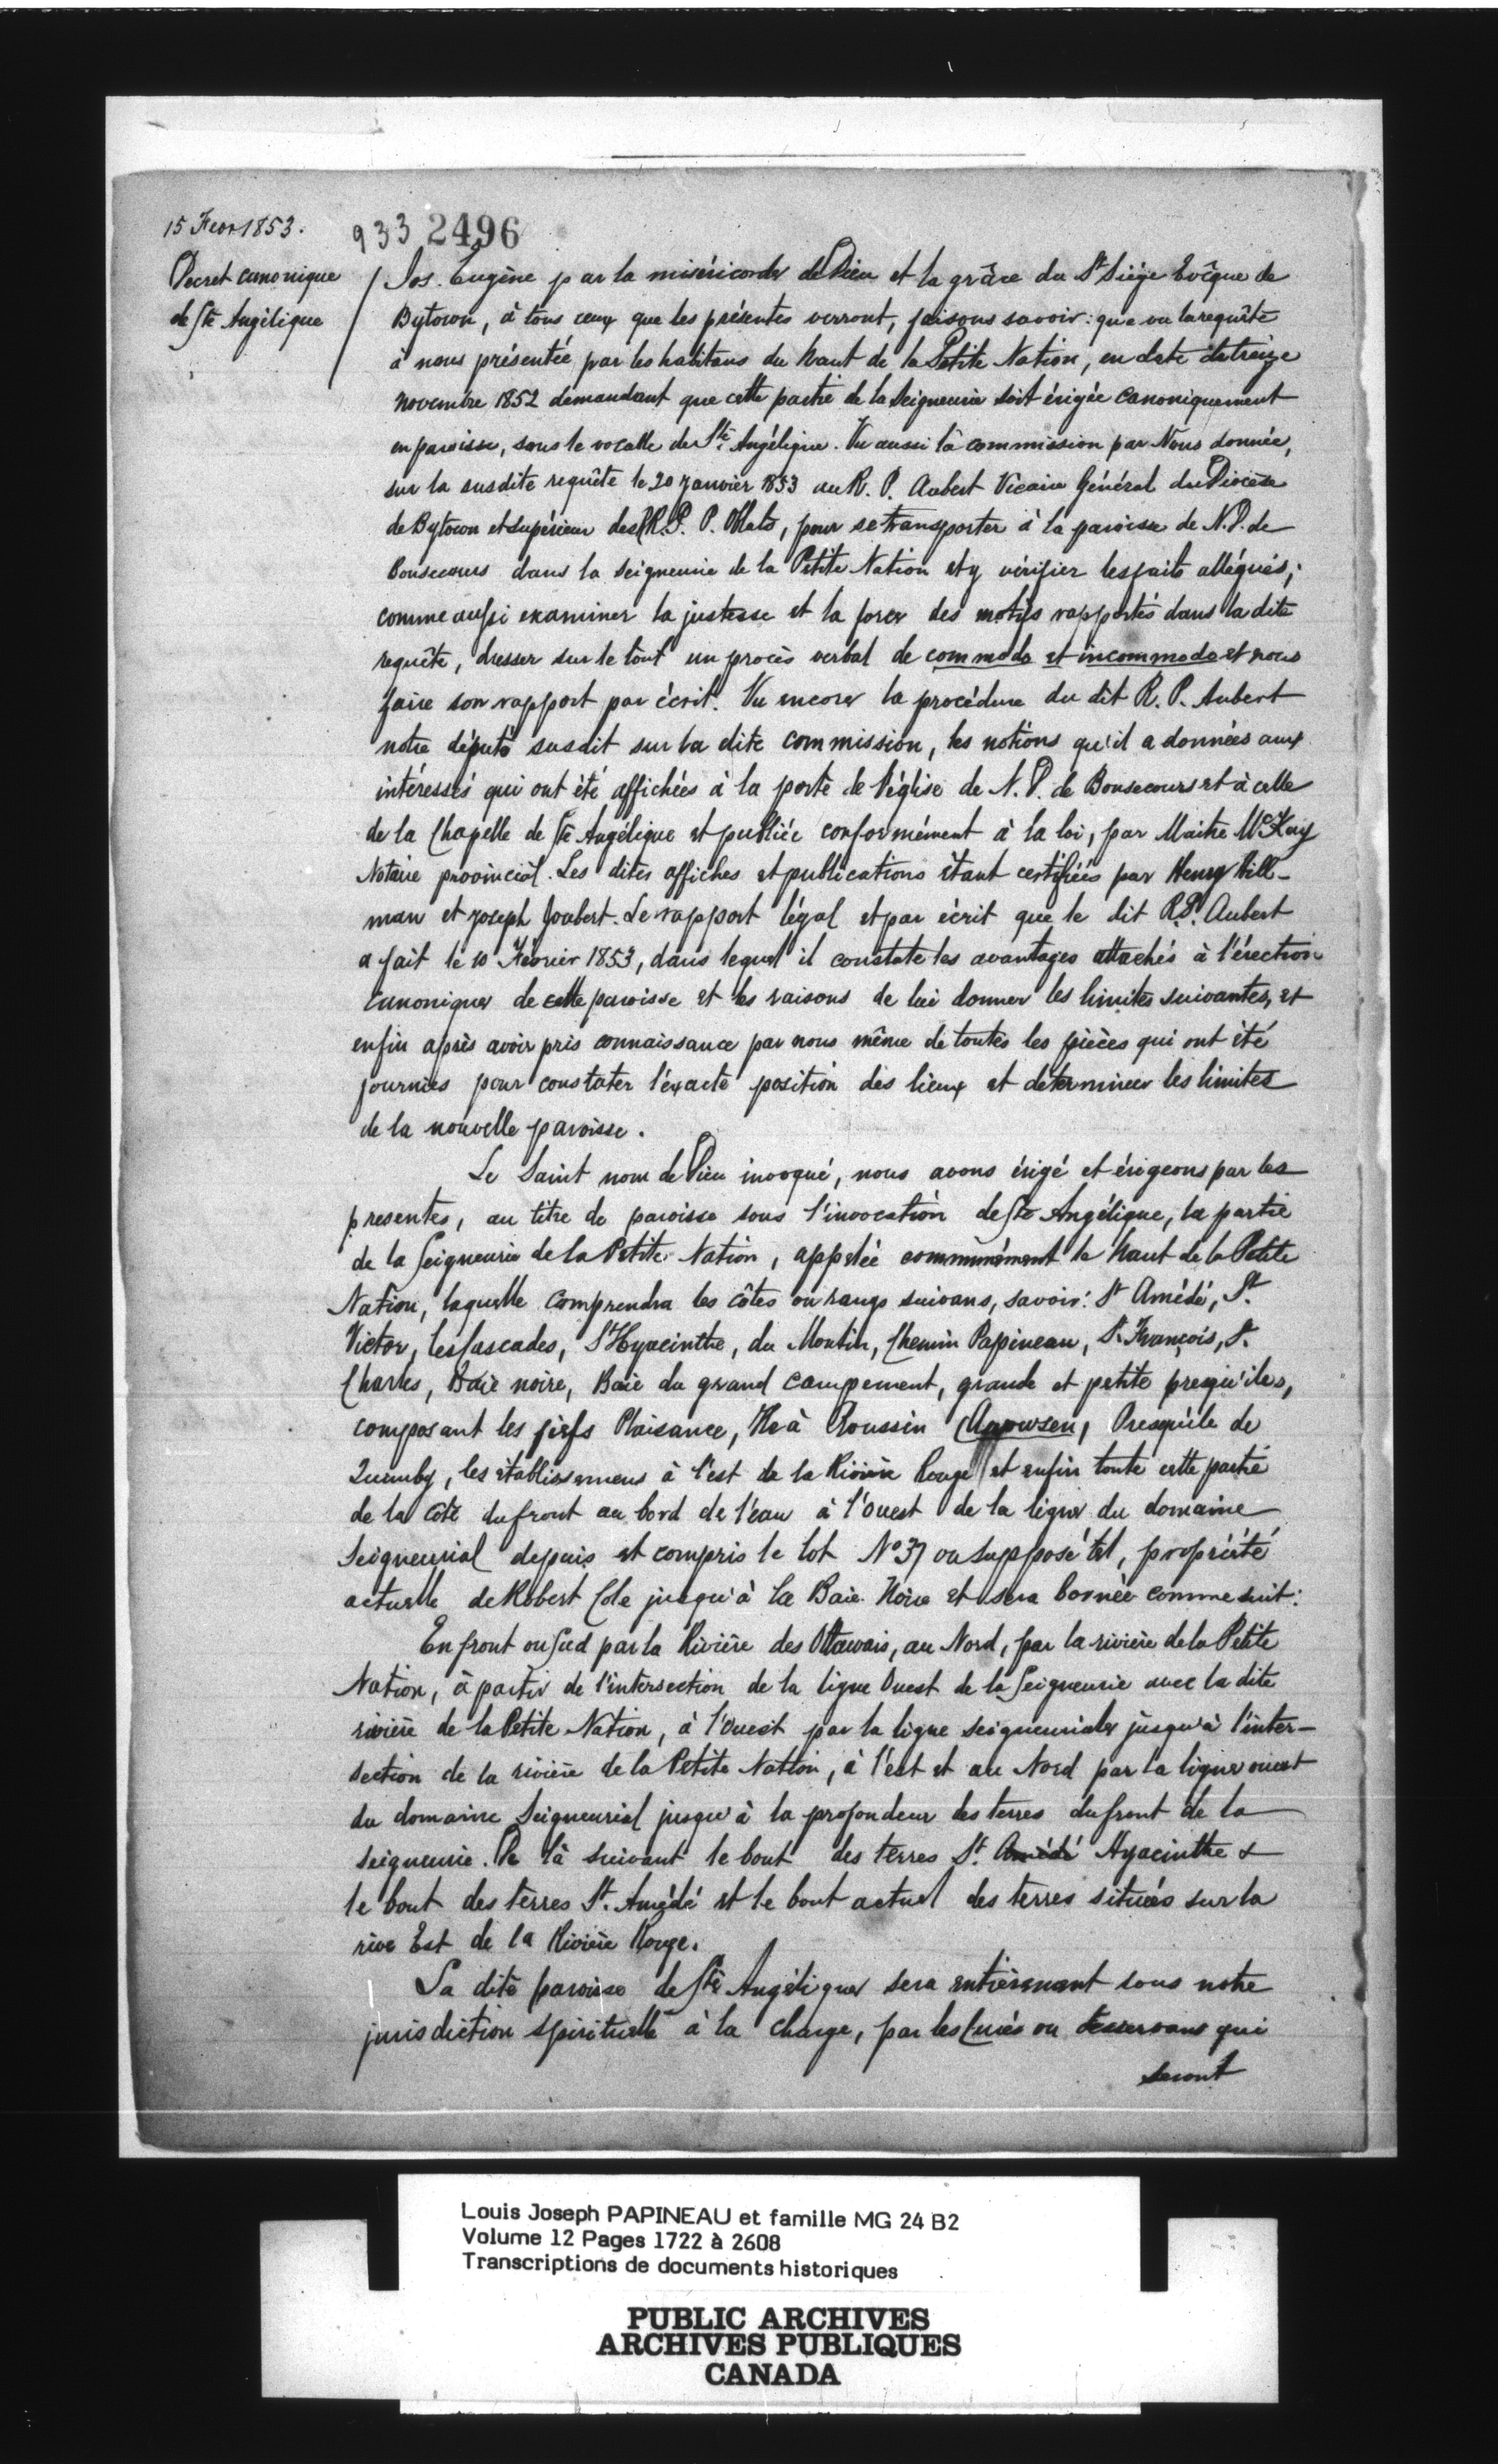 15 Fevr 1853.
933 2496
Decret canonique
de Ste Angélique
Jos. Eugène par la miséricorde de Dieu et la grâce du St Siége Evêque de
Bytown, à tous ceux que les présentes verront, faisons savoir: que vu la requête
à nous présentée par les habitans du haut de la Petite Nation, en date du treize
novembre 1852 demandant que cette partie de la Seigneurie soit érigée canoniquement
en paroisse, sous le vocable de Ste Angélique. Vu aussi la commission par Nous donnée,
sur la susdite requête le 20 janvier 1853 au R. P. Aubert Vicaire Général du Diocèse
de Bytown et supérieur des R.P. P. Oblats, pour se transporter à la paroisse de N.D. de
Bonsecours dans la seigneurie de la Petite Nation et y vérifier les faits allégués;
comme aussi examiner la justesse et la force des motifs rapportés dans la dite
requête, dresser sur le tout un procès verbal de commodo et incommodo et nous
faire son rapport par écrit. Vu encore la procédure du dit R. P. Aubert
notre député susdit sur la dite commission, les notions qu'il a données aux
intéressés qui ont été affichées à la porte de l'église de N. D. de Bonsecours et à celle
de la Chapelle de Ste Angélique et publiée conformément à la loi, par Maitre McKay
Notaire provincial. Les dites affiches et publications étant certifiées par Henry Hill-
man et Joseph Joubert. Le rapport légal et par écrit que le dit R.P. Aubert
a fait le 10 Février 1853, dans lequel il constate les avantages attachés à l'érection
canonique de cette paroisse et les raisons de lui donner les limites suivantes, et
enfin après avoir pris connaissance par nous même de toutes les pièces qui ont été
fournies pour constater l'exacte position des lieux et déterminer les limites
de la nouvelle paroisse.
Le Saint nom de Dieu invoqué, nous avons érigé et érigeons par les
presentes, au titre de paroisse sous l'invocation de Ste Angélique, la partie
de la Seigneurie de la Petite Nation, appelée communément le haut de la Petite
Nation, laquelle comprendra les côtes ou rangs suivans, savoir: St Amédé, St.
Victor, les Cascades, St Hyacinthe, du Moulin, Chemin Papineau, St. François, St.
Charles, Baie noire, Baie du grand campement, grande et petite presqu'iles,
composant les fiefs Plaisance, Ile à Roussin (Arowsen) Presqu'ile de
Quimby, les établissemens à l'est de la Rivière Rouge et enfin toute cette partie
de la côte du front au bord de l'eau à l'ouest de la ligne du domaine
Seigneurial depuis et compris le lot No 37 ou supposé tel, propriété
actuelle de Robert Cole jusqu'à la Baie Noire et sera bornée comme suit:
En front ou Sud par la Rivière des Ottawais, au Nord, par la rivière de la Petite
Nation, à partir de l'intersection de la ligne Ouest de la Seigneurie avec la dite
rivière de la Petite Nation, à l'Ouest par la ligne seigneuriale jusqu'à l'inter-
section de la rivière de la Petite Nation, à l'est et au Nord par la ligne ouest
du domaine Seigneurial jusqu'à la profondeur des terres du front de la
seigneurie. De là suivant le bout des terres St. Amédé Hyacinthe &
le bout des terres St. Amédé et le bout actuel des terres situées sur la
rive Est de la Rivière Rouge.
La dite paroisse de Ste Angélique sera entièrement sous notre
jurisdiction spirituelle à la charge, par les Curés ou desservans qui
seront
Louis Joseph PAPINEAU et famille MG 24 B2
Volume 12 Pages 1722 à 2608
Transcriptions de documents historiques
PUBLIC ARCHIVES
ARCHIVES PUBLIQUES
CANADA